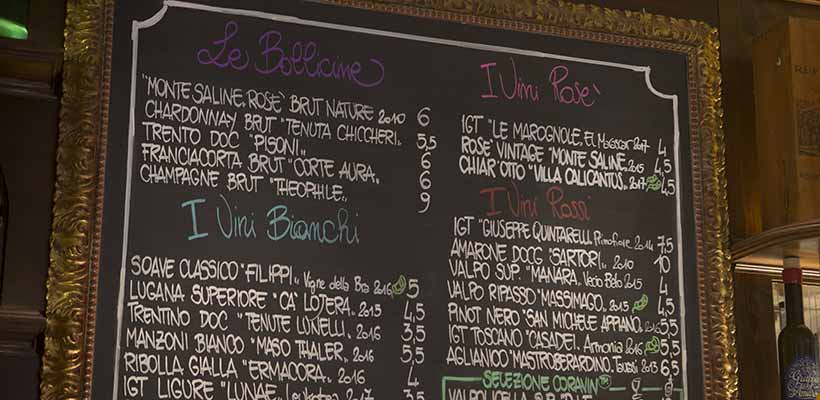 Le Bollicine
"MONTE SALINE, ROSÈ BRUT NATURE 2010 6
CHARDONNAY BRUT "TENUTA CHICCHERI" 5,5
TRENTO DOC "PISONI" 6
FRANCIACORTA BRUT "CORTE AURA" 6
CHAMPAGNE BRUT "THEOPHILE" 9
I Vini Bianchi
SOAVE CLASSICO "FILIPPI" Vigne della Bra 2016 5
LUGANA SUPERIORE "CA' LOJERA" 2015 4,5
TRENTINO DOC "TENUTE LUNELLI" 2016 3,5
MANZONI BIANCO "MASO THALER" 2016 5,5
RIBOLLA GIALLA "ERMACORA" 2016 4
IGT LIGURE "LUNAE" 2017 3,5
I Vini Rosè
IGT "LE MAROGNOLE, 2017 4
ROSÈ VINTAGE "MONTE SALINE" 2015 4,5
CHIAR'OTTO "VILLA CALICANTUS" 2017 4,5
I Vini Rossi
IGT "GIUSEPPE QUINTARELLI" Primofiore 2014 7,5
AMARONE DOCG "SARTORI" 2010 10
VALPO SUP. "MANARA" Vecio Belo 2015 4
VALPO RIPASSO "MASSIMAGO" 2015 4,5
PINOT NERO "SAN MICHELE APPIANO" 2016 5,5
IGT TOSCANO "CASADEI" Armonia 2016 5,5
AGLIANICO "MASTROBERARDINO" Taurasi 2013 6,5
SELEZIONE CORAVIN